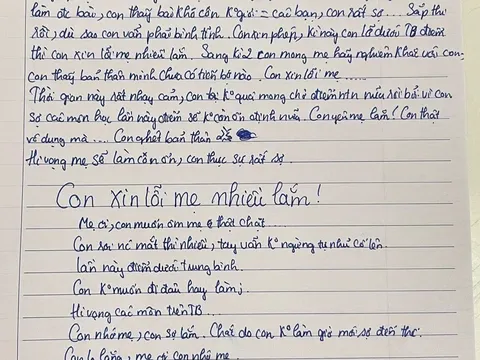 làm đc bài, con thấy bài khó còn K° giỏi = các bạn, con rất sợ .... Sắp thi
rồi, dù sao con vẫn phải bình tĩnh. Con xin phép, kì này con lỡ dưới TB điểm
thì con xin lỗi mẹ nhiều lắm. Sang kì 2 con mong mẹ hãy nghiêm khắc với con
con thấy bản thân mình chưa có tiến bộ nào. Con xin lỗi mẹ .....
Thời gian này rất nhạy cảm, con K° quá mong chờ điểm nữa rồi bố vì con
sợ các môn học lần này điểm số K° còn ổn định nữa. Con yêu mẹ lắm! Con thật
vô dụng mà .... Con ghét bản thân
Hi vọng mẹ sẽ làm còn ổn, con thực sự rất sợ.
Con xin lỗi mẹ nhiều lắm!
Mẹ ơi, con muốn ôm mẹ thật chặt ....
Con rơi nc mắt thì nhiều, tay vẫn K° ngừng tự như cố lên
lần này điểm dưới trung bình.
Con K° muốn đi đâu hay làm j
Hi vọng các môn trên TB...
Con nhớ mẹ, con sợ lắm. Chắc do con K° làm giờ mới sợ đến thế.
Con lo lắng, mẹ ơi con nhớ mẹ